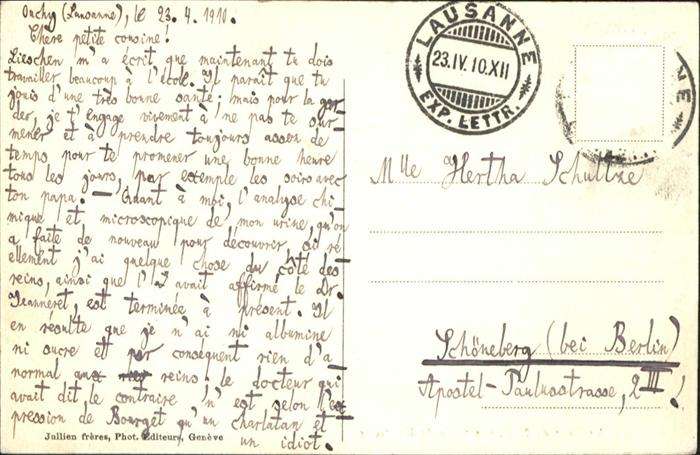 Ouchy (Lausanne), le 23.4.1910.
Chère petite cousine!
Lieschen m'a écrit que maintenant tu dois
travailler beaucoup à l'école. Il paraît que tu
jouis d'une très bonne santé; mais pour la gar-
der, je t'engage vivement à ne pas te sur-
mener et à prendre toujours assez de
temps pour te promener une bonne heure
tous les jours, par exemple les soirs avec
ton papa. — Quant à moi, l'analyse chi-
mique et microscopique de mon urine, qu'on
a faite de nouveau pour découvrir, si ré-
ellement j'ai quelque chose du côté des
reins, ainsi que l'avait affirmé le Dr.
Jeanneret, est terminée à présent. Il
en résulte que je n'ai ni albumine
ni sucre et par conséquent rien d'a
normal aux reins; le docteur qui
avait dit le contraire n'est selon l'ex
pression de Bourget qu'un charlatan et
un idiot.
Jullien frères, Phot. Editeurs, Genève
LAUSANNE
23.IV.10.XII
EXP. LETTR.
NE
Mlle Hertha Schultze
Schöneberg (bei Berlin)
Apostel-Paulusstrasse, 2III!